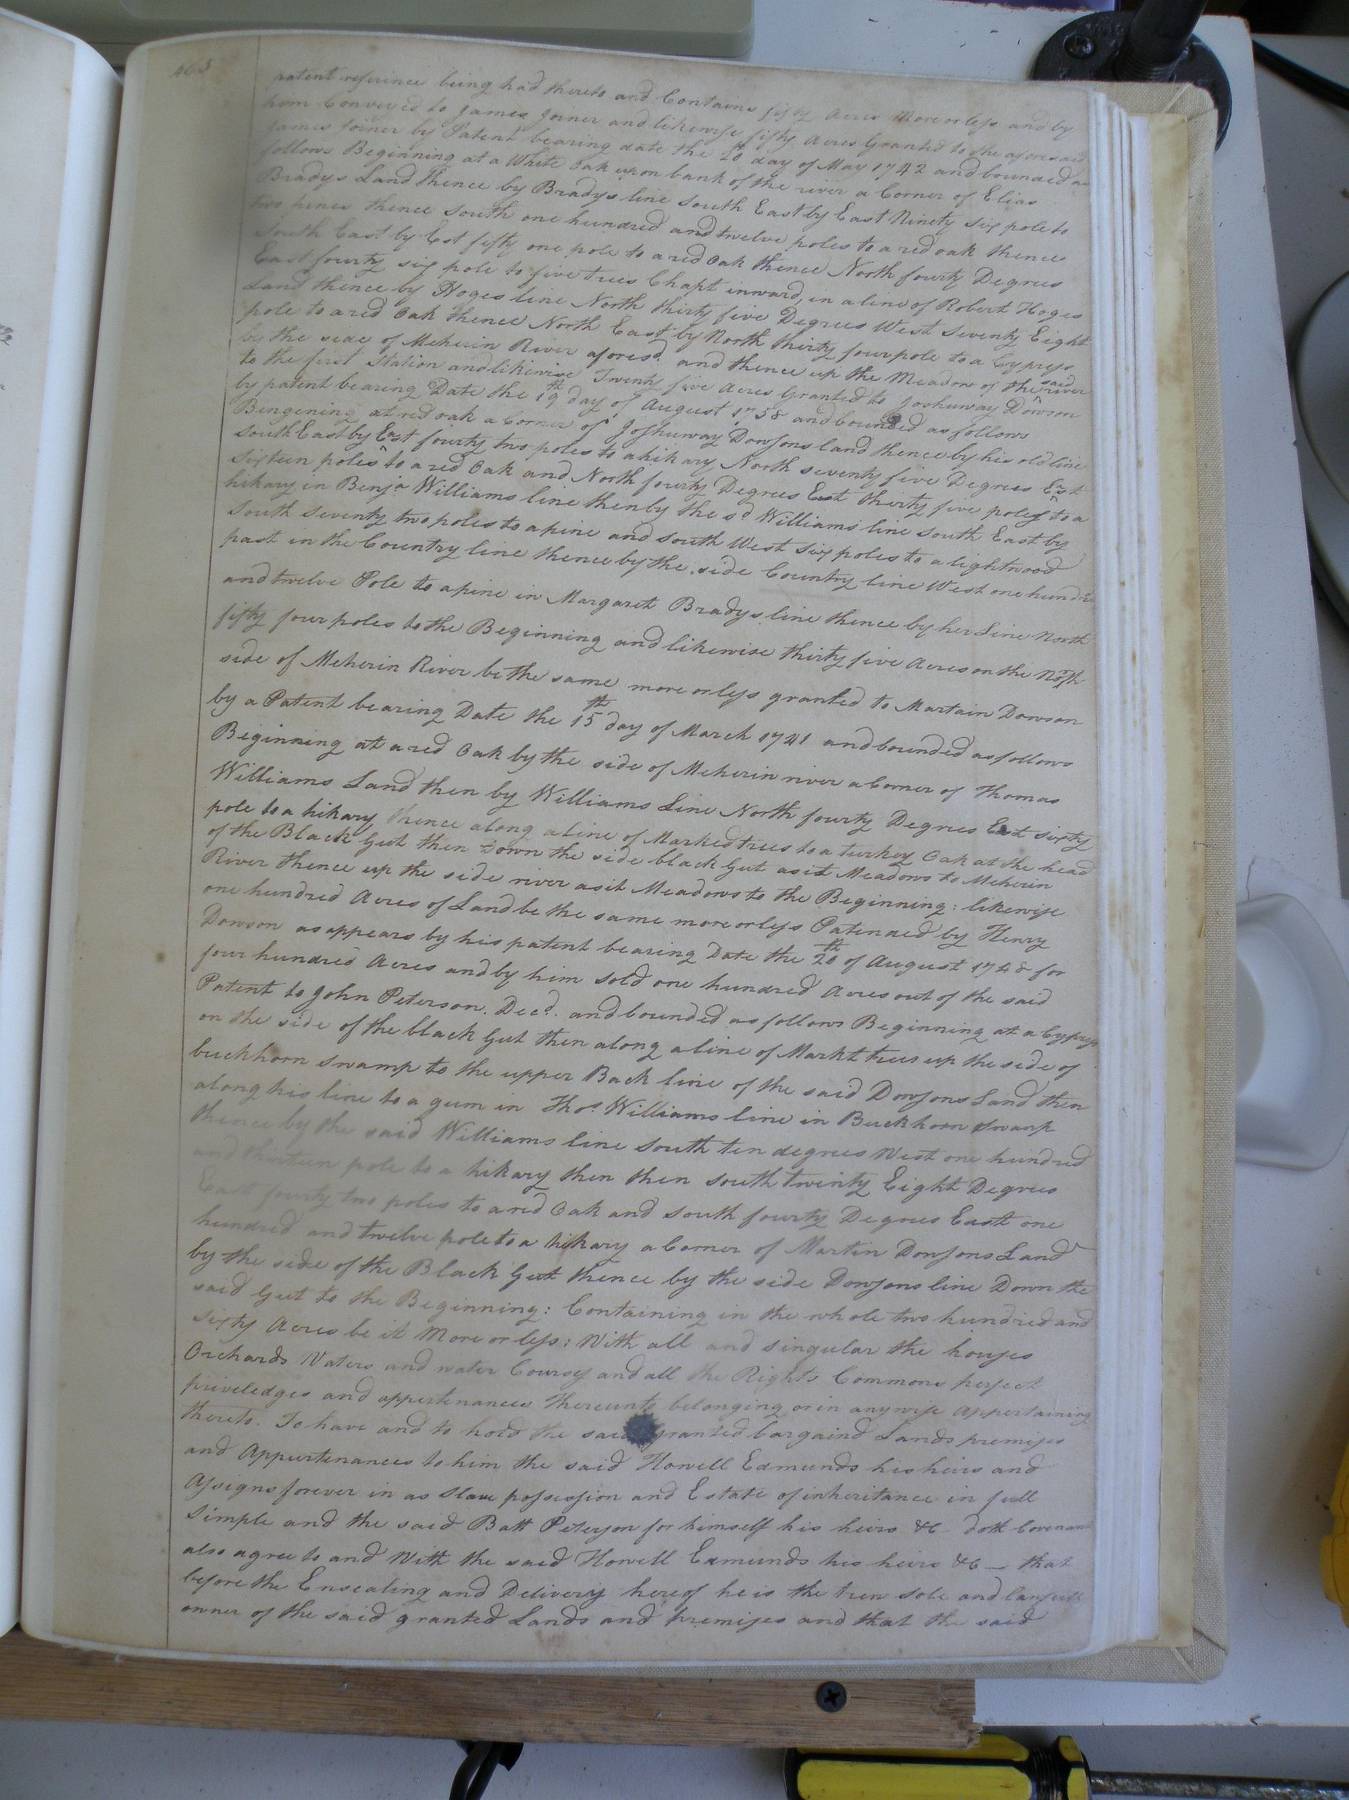 463
patent reference being had thereto and Contains fifty Acres More or less and by
him Conveyed to James Joiner and likewise fifty Acres Grantd to the aforesaid
James Joiner by Patent bearing date the 20th day of May 1742 and bounded as
follows Beginning at a White Oak upon bank of the river a Corner of Elias
Bradys Land thence by Bradys line South East by East Ninety six pole to
two pines thence South one hundred and twelve poles to a red oak thence
South East by Est fifty one pole to a red Oak thence North fourty Degrees
East fourty six pole to five trees Chapt inward, in a line of Robert Hoges
Land thence by Hoges line North thirty five Degrees West Seventy Eight
pole to a red Oak thence North East by North thirty four pole to a Cypress
by the side of Meherin River aforesd. and thence up the Meadow of the said river
to the first Station and likewise Twenty five Acres Granted to Joshuway Dowson
by patent bearing Date the 19th day of August 1758 and bounded as follows
Bingening at red oak a Corner of Joshuway Dowsons land thence by his old line
South East by East fourty two poles to a hikary North seventy five Degrees East
Sixteen poles to a red Oak and North fourty Degrees East thirty five poles to a
hikary in Benja Williams line then by the sd Williams line South East by
South seventy two poles to a pine and South West six poles to a lightwood
past in the Country line thence by the side Country line West one hundred
and twelve Pole to a pine in Margaret Bradys line thence by her Line North
fifty four poles to the Beginning and likewise thirty five Acres on the North
side of Meherin River be the same more or less granted to Martain Dowson
by a Patent bearing Date the 15th day of March 1741 and bounded as follows
Beginning at a red Oak by the side of Meherin river a Corner of Thomas
Williams Land then by Williams Line North fourty Degrees East sixty
pole to a hikary thence along a line of Marked trees to a turkey Oak at the head
of the Black Gut then down the side black Gut as it Meadows to Meherin
River thence up the side river as it Meadows to the Beginning: likewise
one hundred Acres of Land be the same more or less Patened by Henry
Dowson as appears by his patent bearing Date the 20th of August 1748 for
four hundred Acres and by him sold one hundred Acres out of the said
Patent to John Peterson. Decd. and bounded as follows Beginning at a Cypress
on the side of the black Gut then along a line of Markt trees up the side of
buckhorn swamp to the upper Back line of the said Dowsons Land then
along his line to a gum in Thos. Williams line in Buckhorn Swamp
thence by the said Williams line South ten degrees West one hundred
and thirteen pole to a hikary then then South twenty Eight Degrees
East fourty two poles to a red Oak and South fourty Degrees East one
hundred and twelve pole to a hikary a Corner of Martin Dowsons Land
by the side of the Black Gut thence by the side Dowsons line Down the
said Gut to the Beginning: Containing in the whole two hundred and
Sixty Acres be it More or less: With all and singular the houses
Orchards Waters and water Courses and all the Rights Commons perfect
priveledges and appertenances thereunto belonging or in anywise appertaining
thereto. To have and to hold the said granted bargaind Lands premises
and Appurtenances to him the said Howell Edmunds his heirs and
Assigns forever in as Slave possession and Estate of inheritance in full
Simple and the said Batt Peterson for himself his heirs &C doth Covenant
also agree to and With the said Howell Edmunds his heirs &C — that
before the Ensealing and Delivery hereof he is the trew sole and lawfull
owner of the said granted Lands and premises and that the said